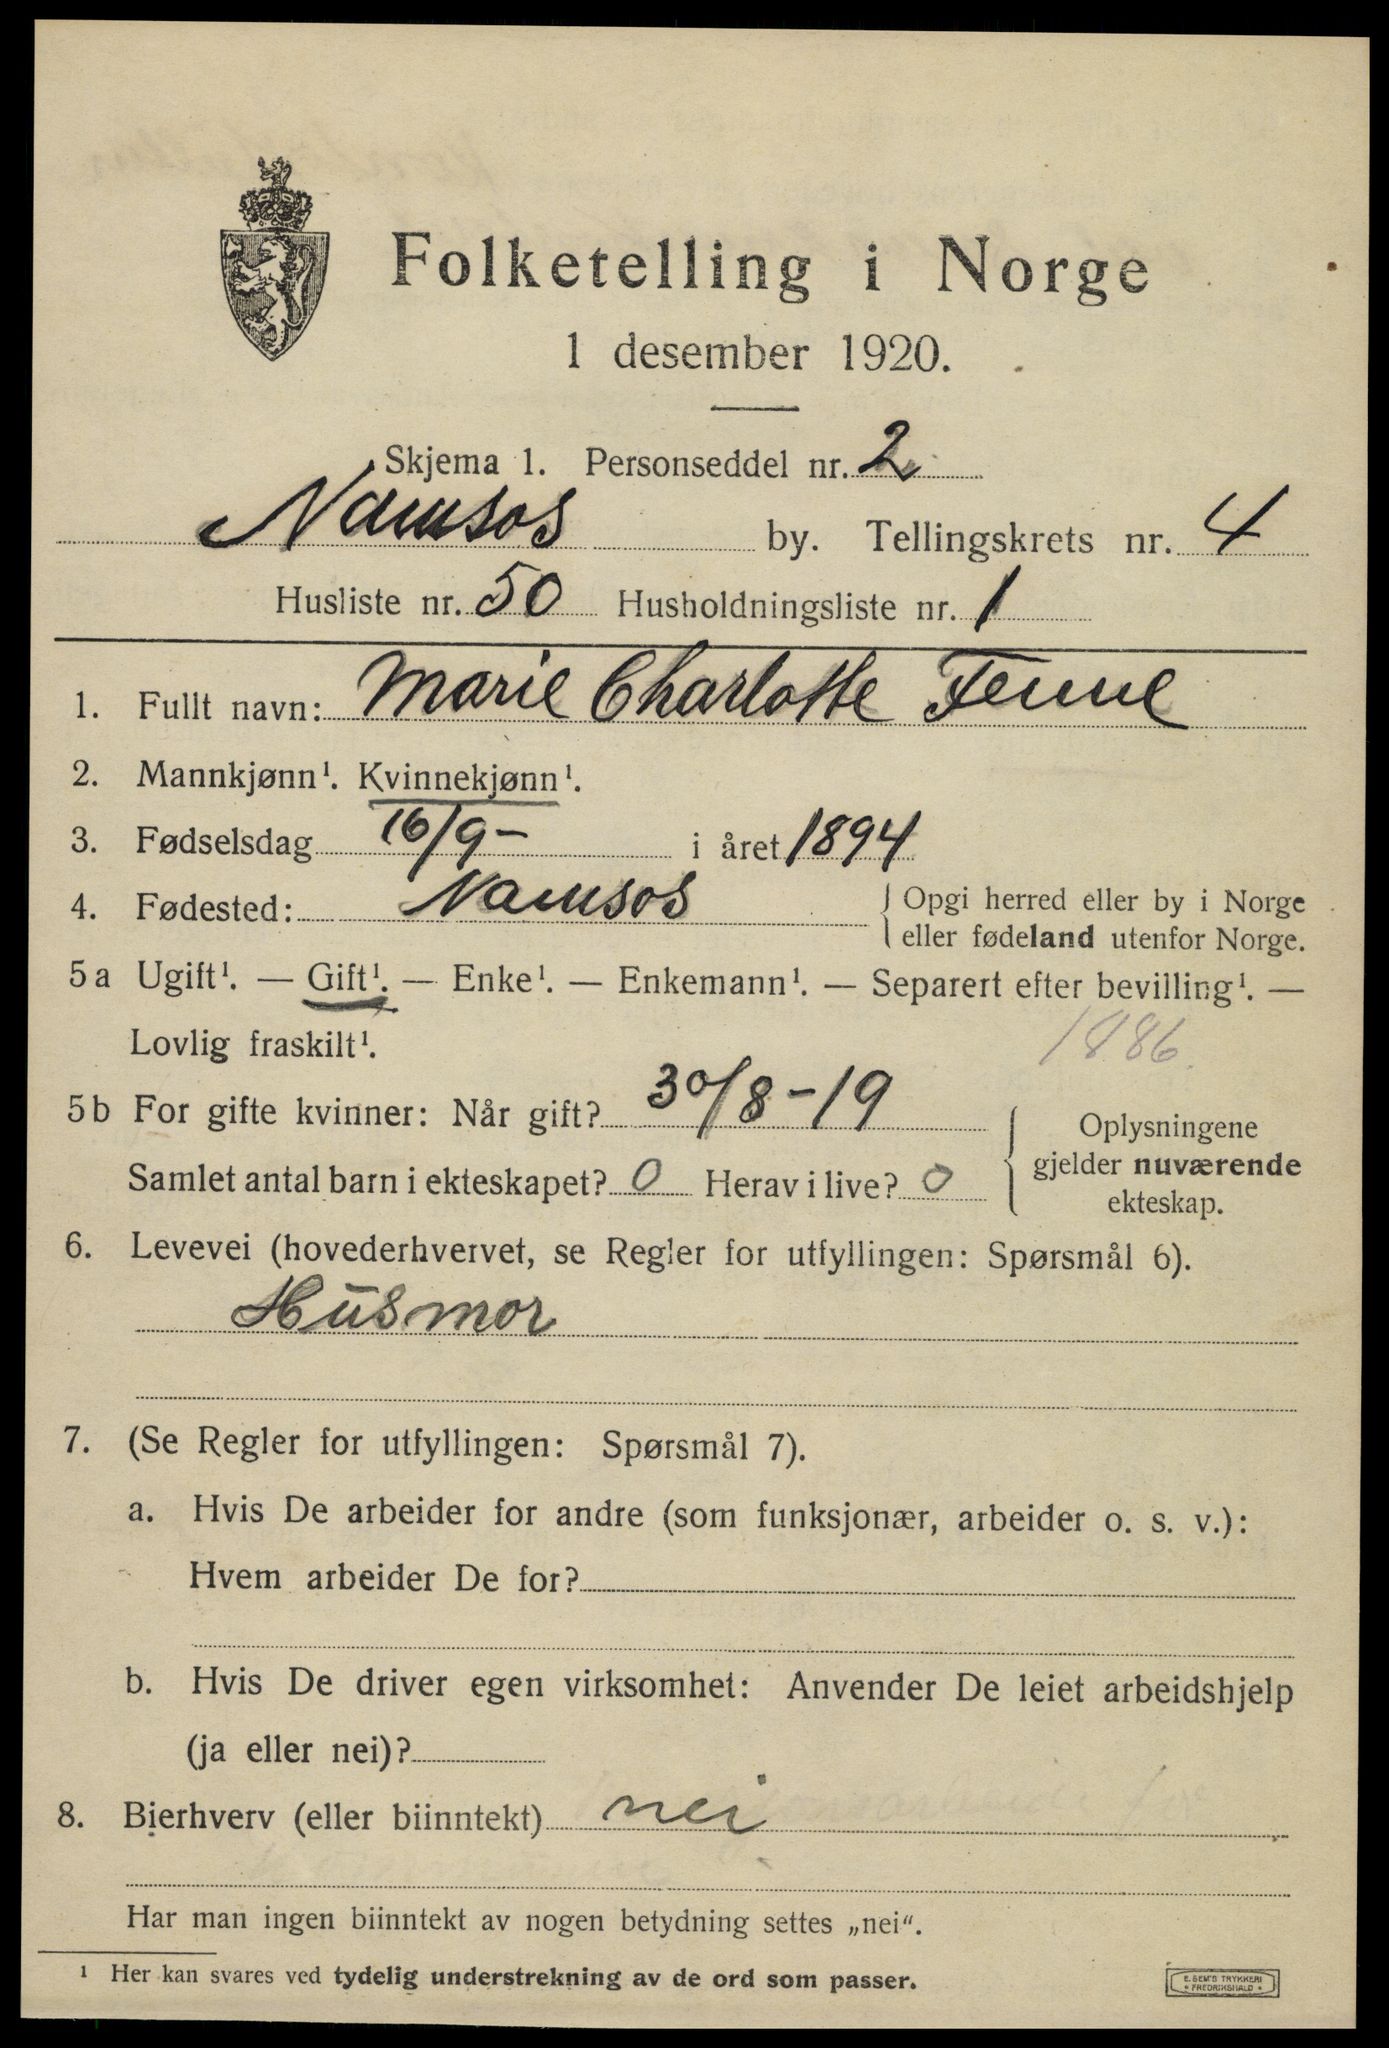 Folketelling i Norge
1 desember 1920.
Skjema 1. Personseddel nr. 2
Namsos by. Tellingskrets nr. 4
Husliste nr. 50 Husholdningsliste nr. 1
1. Fullt navn: Marie Charlotte Fenne
2. Mannkjønn¹. Kvinnekjønn¹.
3. Fødselsdag 16/9- i året 1894
4. Fødested: Namsos { Opgi herred eller by i Norge
eller fødeland utenfor Norge.
5a Ugift¹. — Gift¹. — Enke¹. — Enkemann¹. — Separert efter bevilling¹. —
Lovlig fraskilt¹. 1886
5b For gifte kvinner: Når gift? 30/8-19
Samlet antal barn i ekteskapet? 0 Herav i live? 0
{ Oplysningene
gjelder nuværende
ekteskap.
6. Levevei (hovederhvervet, se Regler for utfyllingen: Spørsmål 6).
Husmor
7. (Se Regler for utfyllingen: Spørsmål 7).
a. Hvis De arbeider for andre (som funksjonær, arbeider o. s. v.):
Hvem arbeider De for?
b. Hvis De driver egen virksomhet: Anvender De leiet arbeidshjelp
(ja eller nei)?
8. Bierhverv (eller biinntekt) nei
Har man ingen biinntekt av nogen betydning settes „nei“.
¹ Her kan svares ved tydelig understrekning av de ord som passer.
E. SEM'S TRYKKERI
• FREDRIKSHALD •